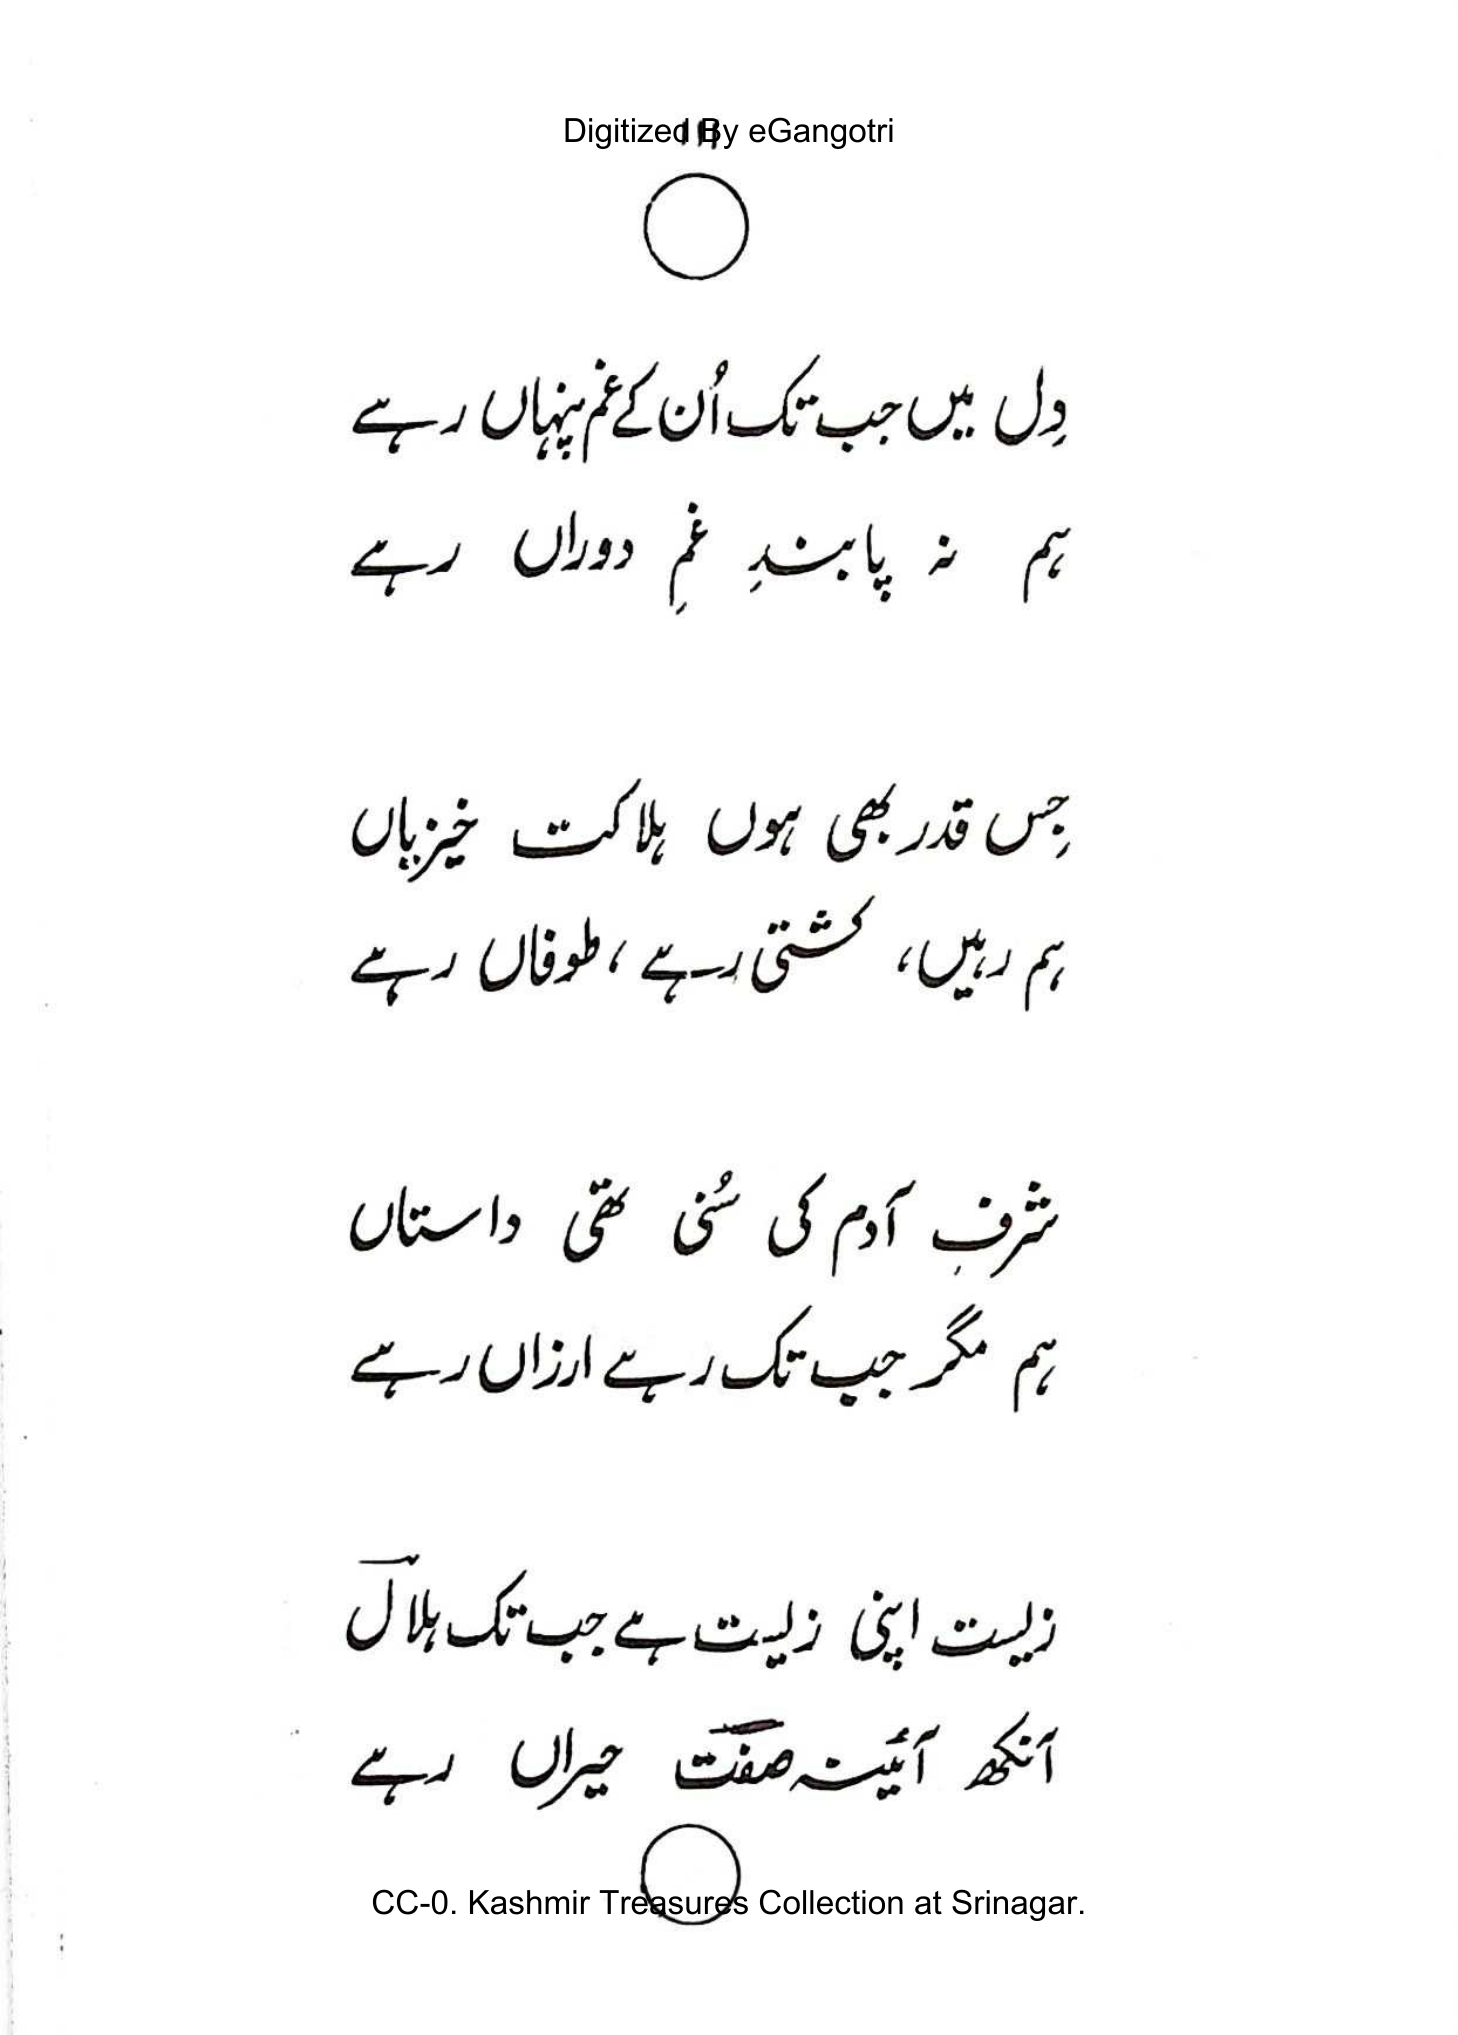 Digitized By eGangotri
دِل میں جب تک اُن کے غم پنہاں رہے
ہم نہ پابندِ غمِ دوراں رہے
جِس قدر بھی ہوں ہلاکت خیزیاں
ہم رہیں، کشتی رہے، طوفاں رہے
شرفِ آدم کی سُنی تھی داستاں
ہم مگر جب تک رہے ارزاں رہے
زیست اپنی زیست ہے جب تک ہلالؔ
آنکھ آئینہ صفت حیراں رہے
CC-0. Kashmir Treasures Collection at Srinagar.